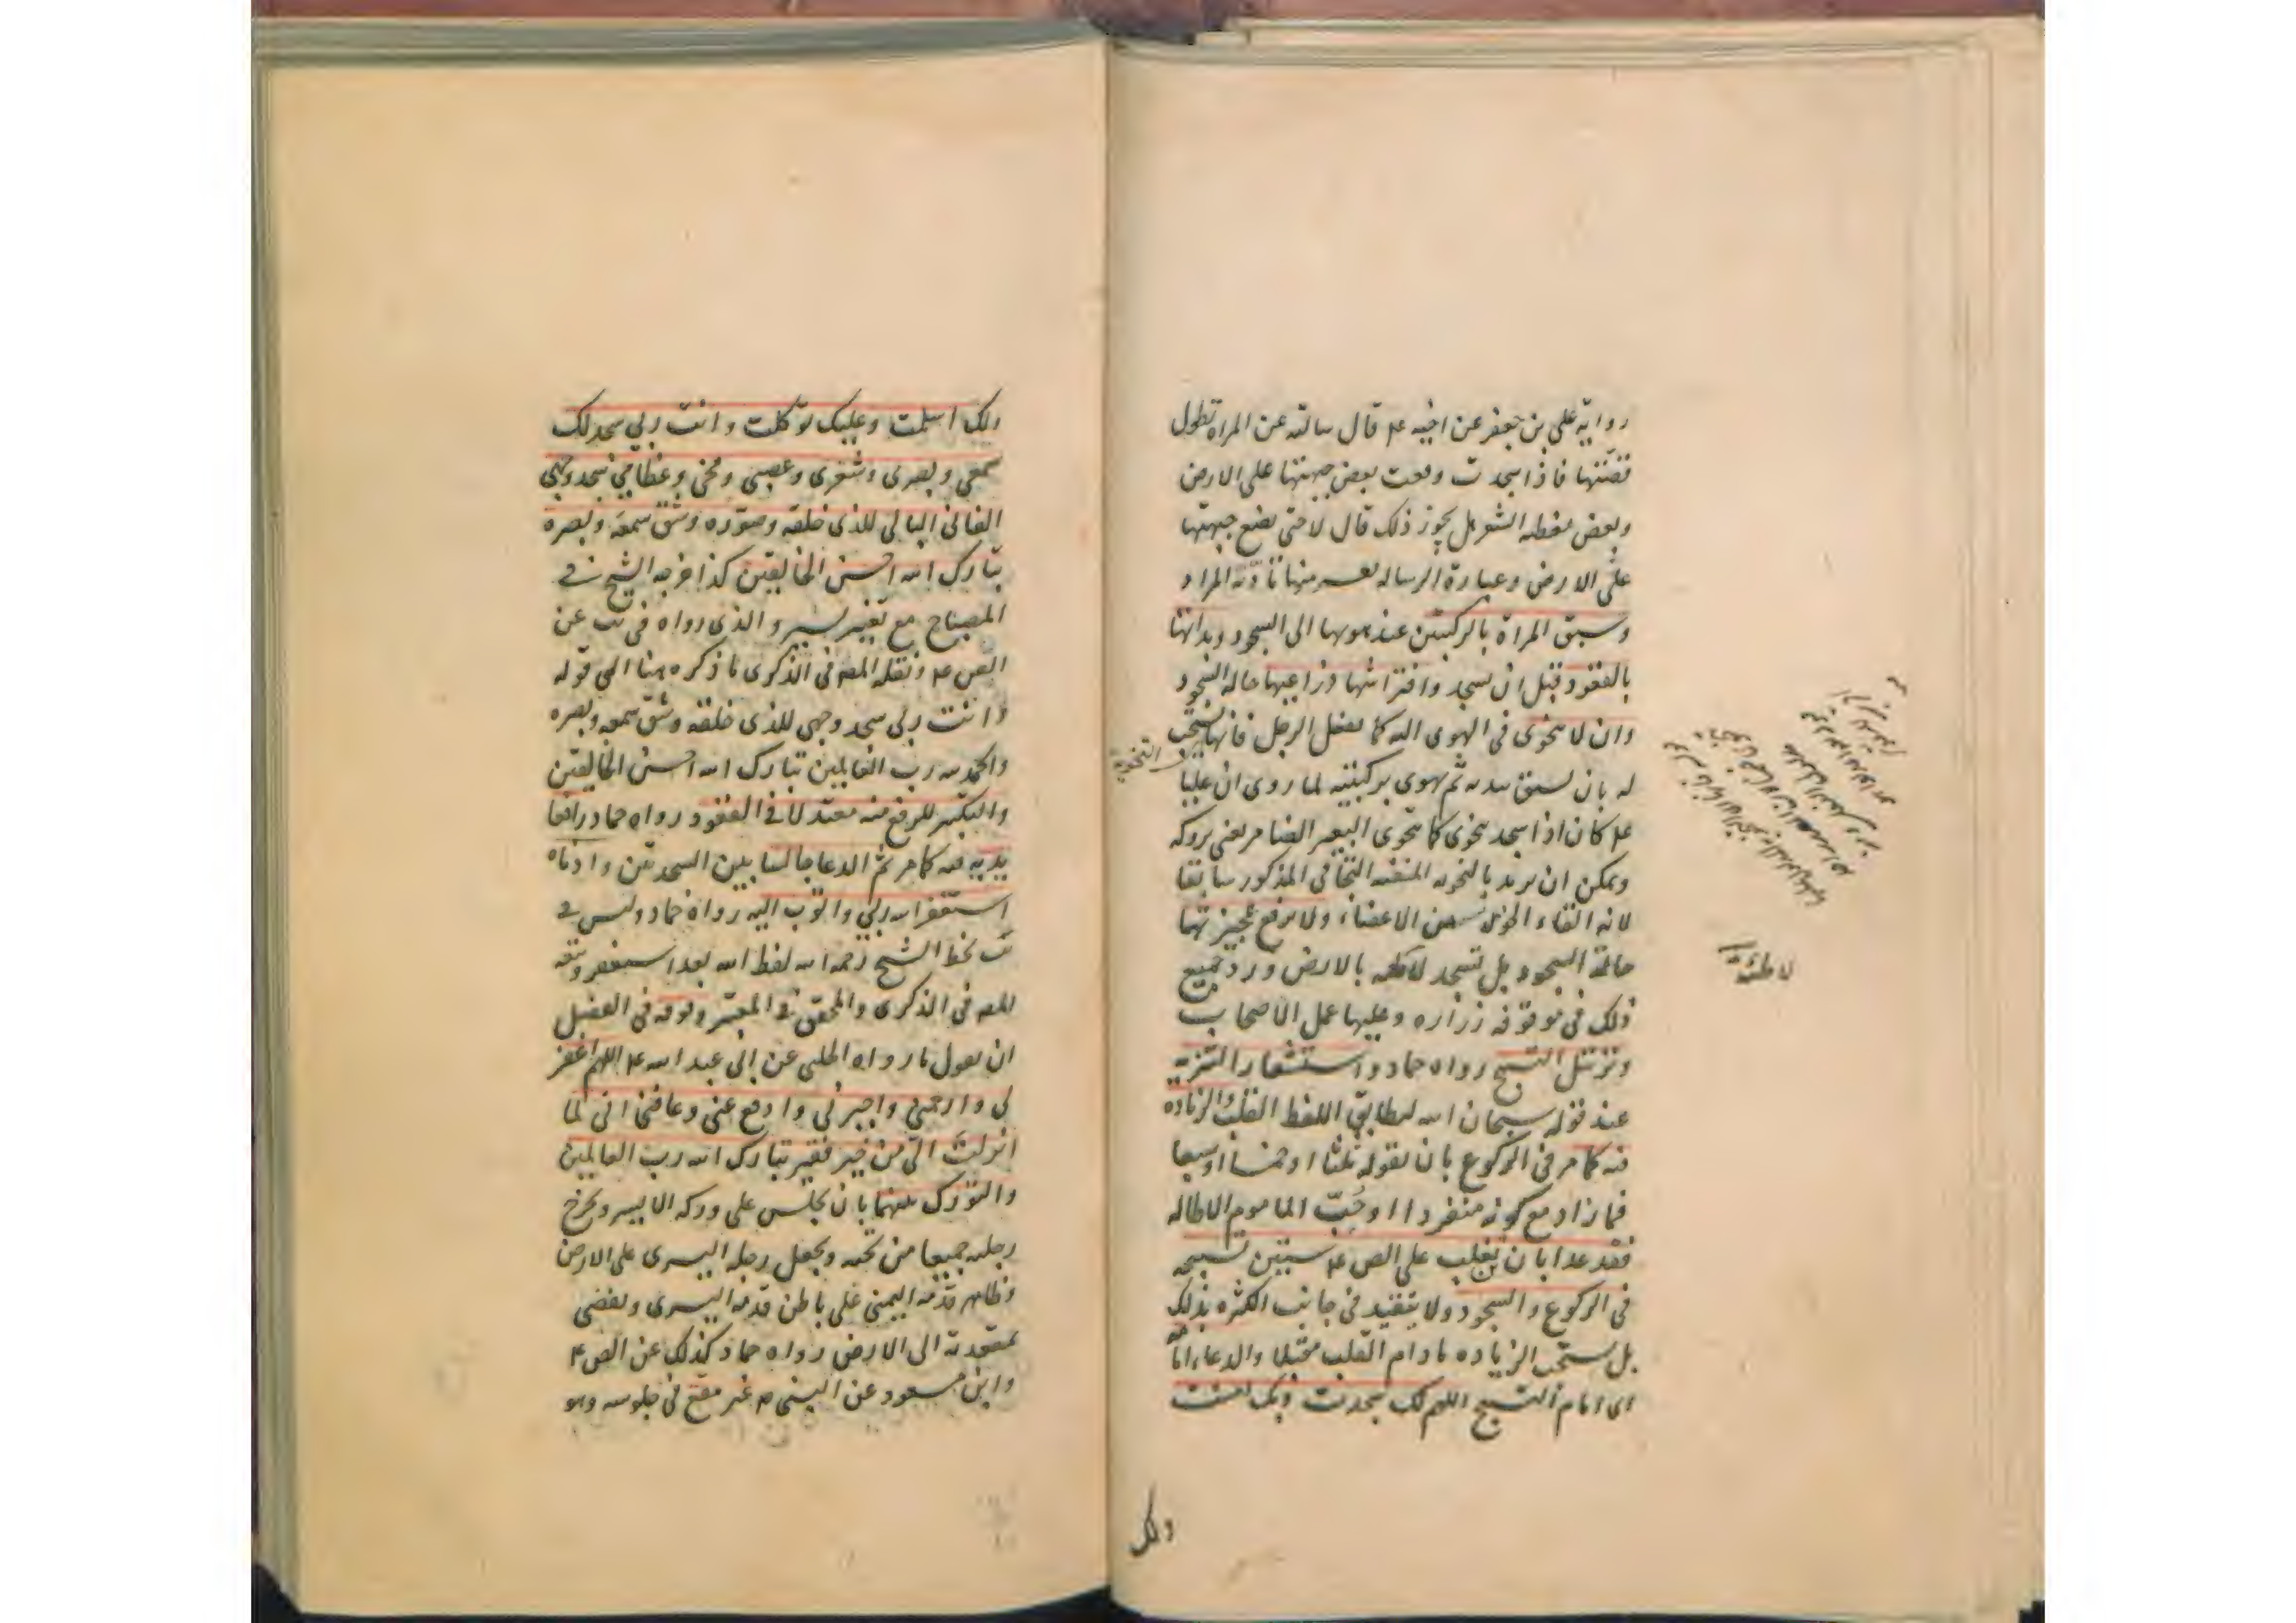 رواية علي بن جعفر عن اخيه ع قال سالته عن المراة تطول
قصّتها فاذا سجدت وقعت بعض جبهتها على الارض
وبعض يغطيه الشعر هل يجوز ذلك قال لا حتى تضع جبهتها
على الارض وعبارة الرسالة منها تادّية المراد
وسبق المراة بالركبتين عند هويها الى السجود وبداتها
بالقعود قبل ان تسجد وافتراشها ذراعيها حالة السجود
وان لا تتخوى في الهوى اليه كما يفعل الرجل فانها يستحب
التخوية
له بان يسبق بيديه ثم يهوى بركبتيه لما روى ان عليا
ع كان اذا سجد يتخوى كما يتخوى البعير الضامر يعنى بروكه
ويمكن ان يريد بالتخوية المنفية التجافى المذكور سابقا
لانه القاء الخوى بين الاعضاء ولا ترفع عجيزتها
حالة السجود بل تسجد لاطئة بالارض ورد جميع
لاطئة
ذلك في موقوفة زراره وعليها عمل الاصحاب
وترتيل التسبيح رواه حماد واستشعار التنزيه
عند قوله سبحان الله ليطابق اللفظ القلب والزيادة
فيه كما مر فى الركوع بان يقوله ثلثا او خمسا او سبعا
فما زاد مع كونه منفردا او حُبّ الماموم الاطالة
فقد عد ابان بن تغلب على الص ع ستين تسبيحة
فى الركوع والسجود ولا يتقيد فى جانب الكثره بذلك
بل يستحب الزياده مادام القلب مقبلا والدعاء امامه
اى امام التسبيح اللهم لك سجدت وبك امنت
ولك
ولك اسلمت وعليك توكلت وانت ربي سجد لك
سمعي وبصرى وشعرى وعصبى ومخى وعظامي سجد وجهي
الفانى البالى للذى خلقه وصوّره وشق سمعه وبصره
تبارك الله احسن الخالقين كذا اخرجه الشيخ في
المصباح مع تغيير يسير والذى رواه في يب عن
الص ع ونقله المص فى الذكرى ما ذكره هنا الى قوله
وانت ربى سجد وجهى للذى خلقه وشق سمعه وبصره
والحمد لله رب العالمين تبارك الله احسن الخالقين
والتكبير للرفع منه معتدلا في القعود رواه حماد رافعا
يديه فيه كما مر ثم الدعا جالسا بين السجدتين وادناه
استغفر الله ربي واتوب اليه رواه حماد وليس في
يب بخط الشيخ رحمه الله لفظ الله بعد استغفر وتبعه
المص فى الذكرى والمحقق في المعتبر وفوقه فى الفضل
ان يقول ما رواه الحلبى عن ابى عبد الله ع اللهم اغفر
لى وارحمنى واجبرنى وادفع عنى وعافنى انى لما
انزلتَ الىّ من خير فقير تبارك الله رب العالمين
والتورك بينهما بان يجلس على وركه الايسر ويخرج
رجليه جميعا من تحته ويجعل رجله اليسرى على الارض
وظاهر قدمه اليمنى على باطن قدمه اليسرى ويفضى
بمقعدته الى الارض رواه حماد كذلك عن الص ع
وابن مسعود عن النبى ص غير مقع فى جلوسه وهو